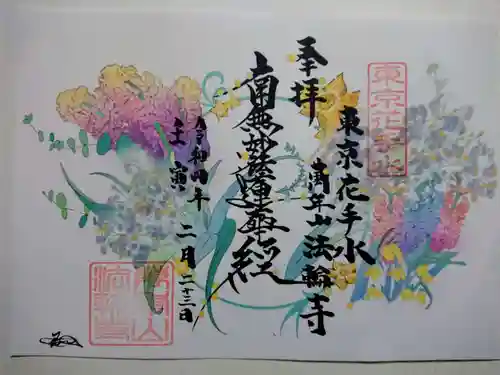 東京花手水
奉拝
東京花手水
萬年山法輪寺
南無妙法蓮華経
令和四年
壬寅
二月二十三日